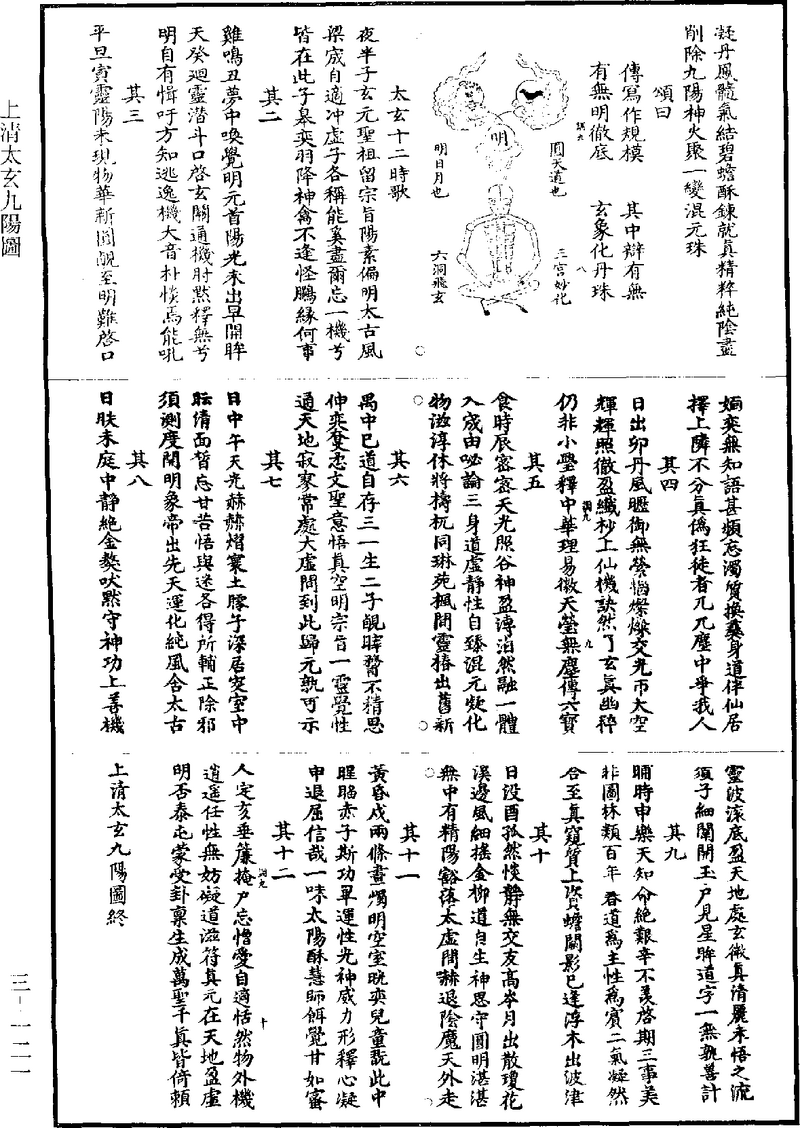 上清太玄九陽圖
三-一二一
凝丹鳳髓氣結碧蟾酥鍊就真精粹純陰盡
削除九陽神火聚一變混元珠
頌曰
傳寫作規模 其中辯有無
有無明徹底 玄象化丹珠
圓天道也
明
明日月也
三宮妙化
六洞飛玄
太玄十二時歌
夜半子玄元聖祖留宗旨陽素偏明太古風
梁宬自適冲虛子各稱能奚盡爾忘一機兮
皆在此子皋奕羽降神禽不逢怪鵬緣何事
其二
雞鳴丑夢中喚覺明元首陽光未出早開眸
天癸迴靈潛斗口啓玄關通機肘黙釋無兮
明自有惟吁方知逃逸機大音朴惔焉能吼
其三
平旦寅靈陽未現物華新圓覩至明難啓口
婳奕無知語甚頻忘濁質換㒒身道伴仙居
擇上隣不分真偽狂徒者兀兀塵中爭我人
其四
日出卯丹風颺御無縈惱燦爍交光帀太空
輝輝照徹盈纖杪上仙機訣然了玄真幽粹
仍非小璺釋中華理易微天瑩無塵傳六寳
其五
食時辰密密天光照谷神盈溥泊然融一體
入宬由咇論三身道虛靜性自臻混元凝化
物滋淳休將擣杌同琳苑楓間靈椿出舊新
其六
禺中巳道自存三一生二子覩睟瞀不精思
仲奕㕙忞文聖意悟真空明宗旨一靈覺性
通天地寂寥常處大虛間到此歸元孰可示
其七
日中午天光赫赫熠寰土朦子深居突室中
眃倩面晳忘甘苦悟與迷各得所輔正除邪
須測度闡明象帝出先天運化純風含太古
其八
日昳未庭中靜絶金獒吠黙守神功上善機
靈波滚底盈天地處玄微真清麗未悟之流
須子細闡開玉戶見星眸道字一無孰善計
其九
晡時申樂天知命絶艱辛不羨啓期三事美
非圖林類百年春道為主性為賓二氣凝然
合至真窺質上資蟾闕影已逢浮木出波津
其十
日沒酉孤然惔靜無交友高岑月出散瓊花
溪邊風細搖金柳道自生神思守圓明湛湛
無中有精陽豁落太虛間赫退陰魔天外走
其十一
黄昏戌兩條畫燭明空室晄奕兒童翫此中
睲䀄赤子斯功畢運性光神威力形釋心凝
申退屈信哉一味太陽酥慧師餌覺甘如蜜
其十二
人定亥垂簾掩戶忘憎愛自適恬然物外機
逍遥任性無妨礙道滋符真元在天地盈虛
明否泰屯蒙受卦稟生成萬聖千真皆倚賴
上清太玄九陽圖終